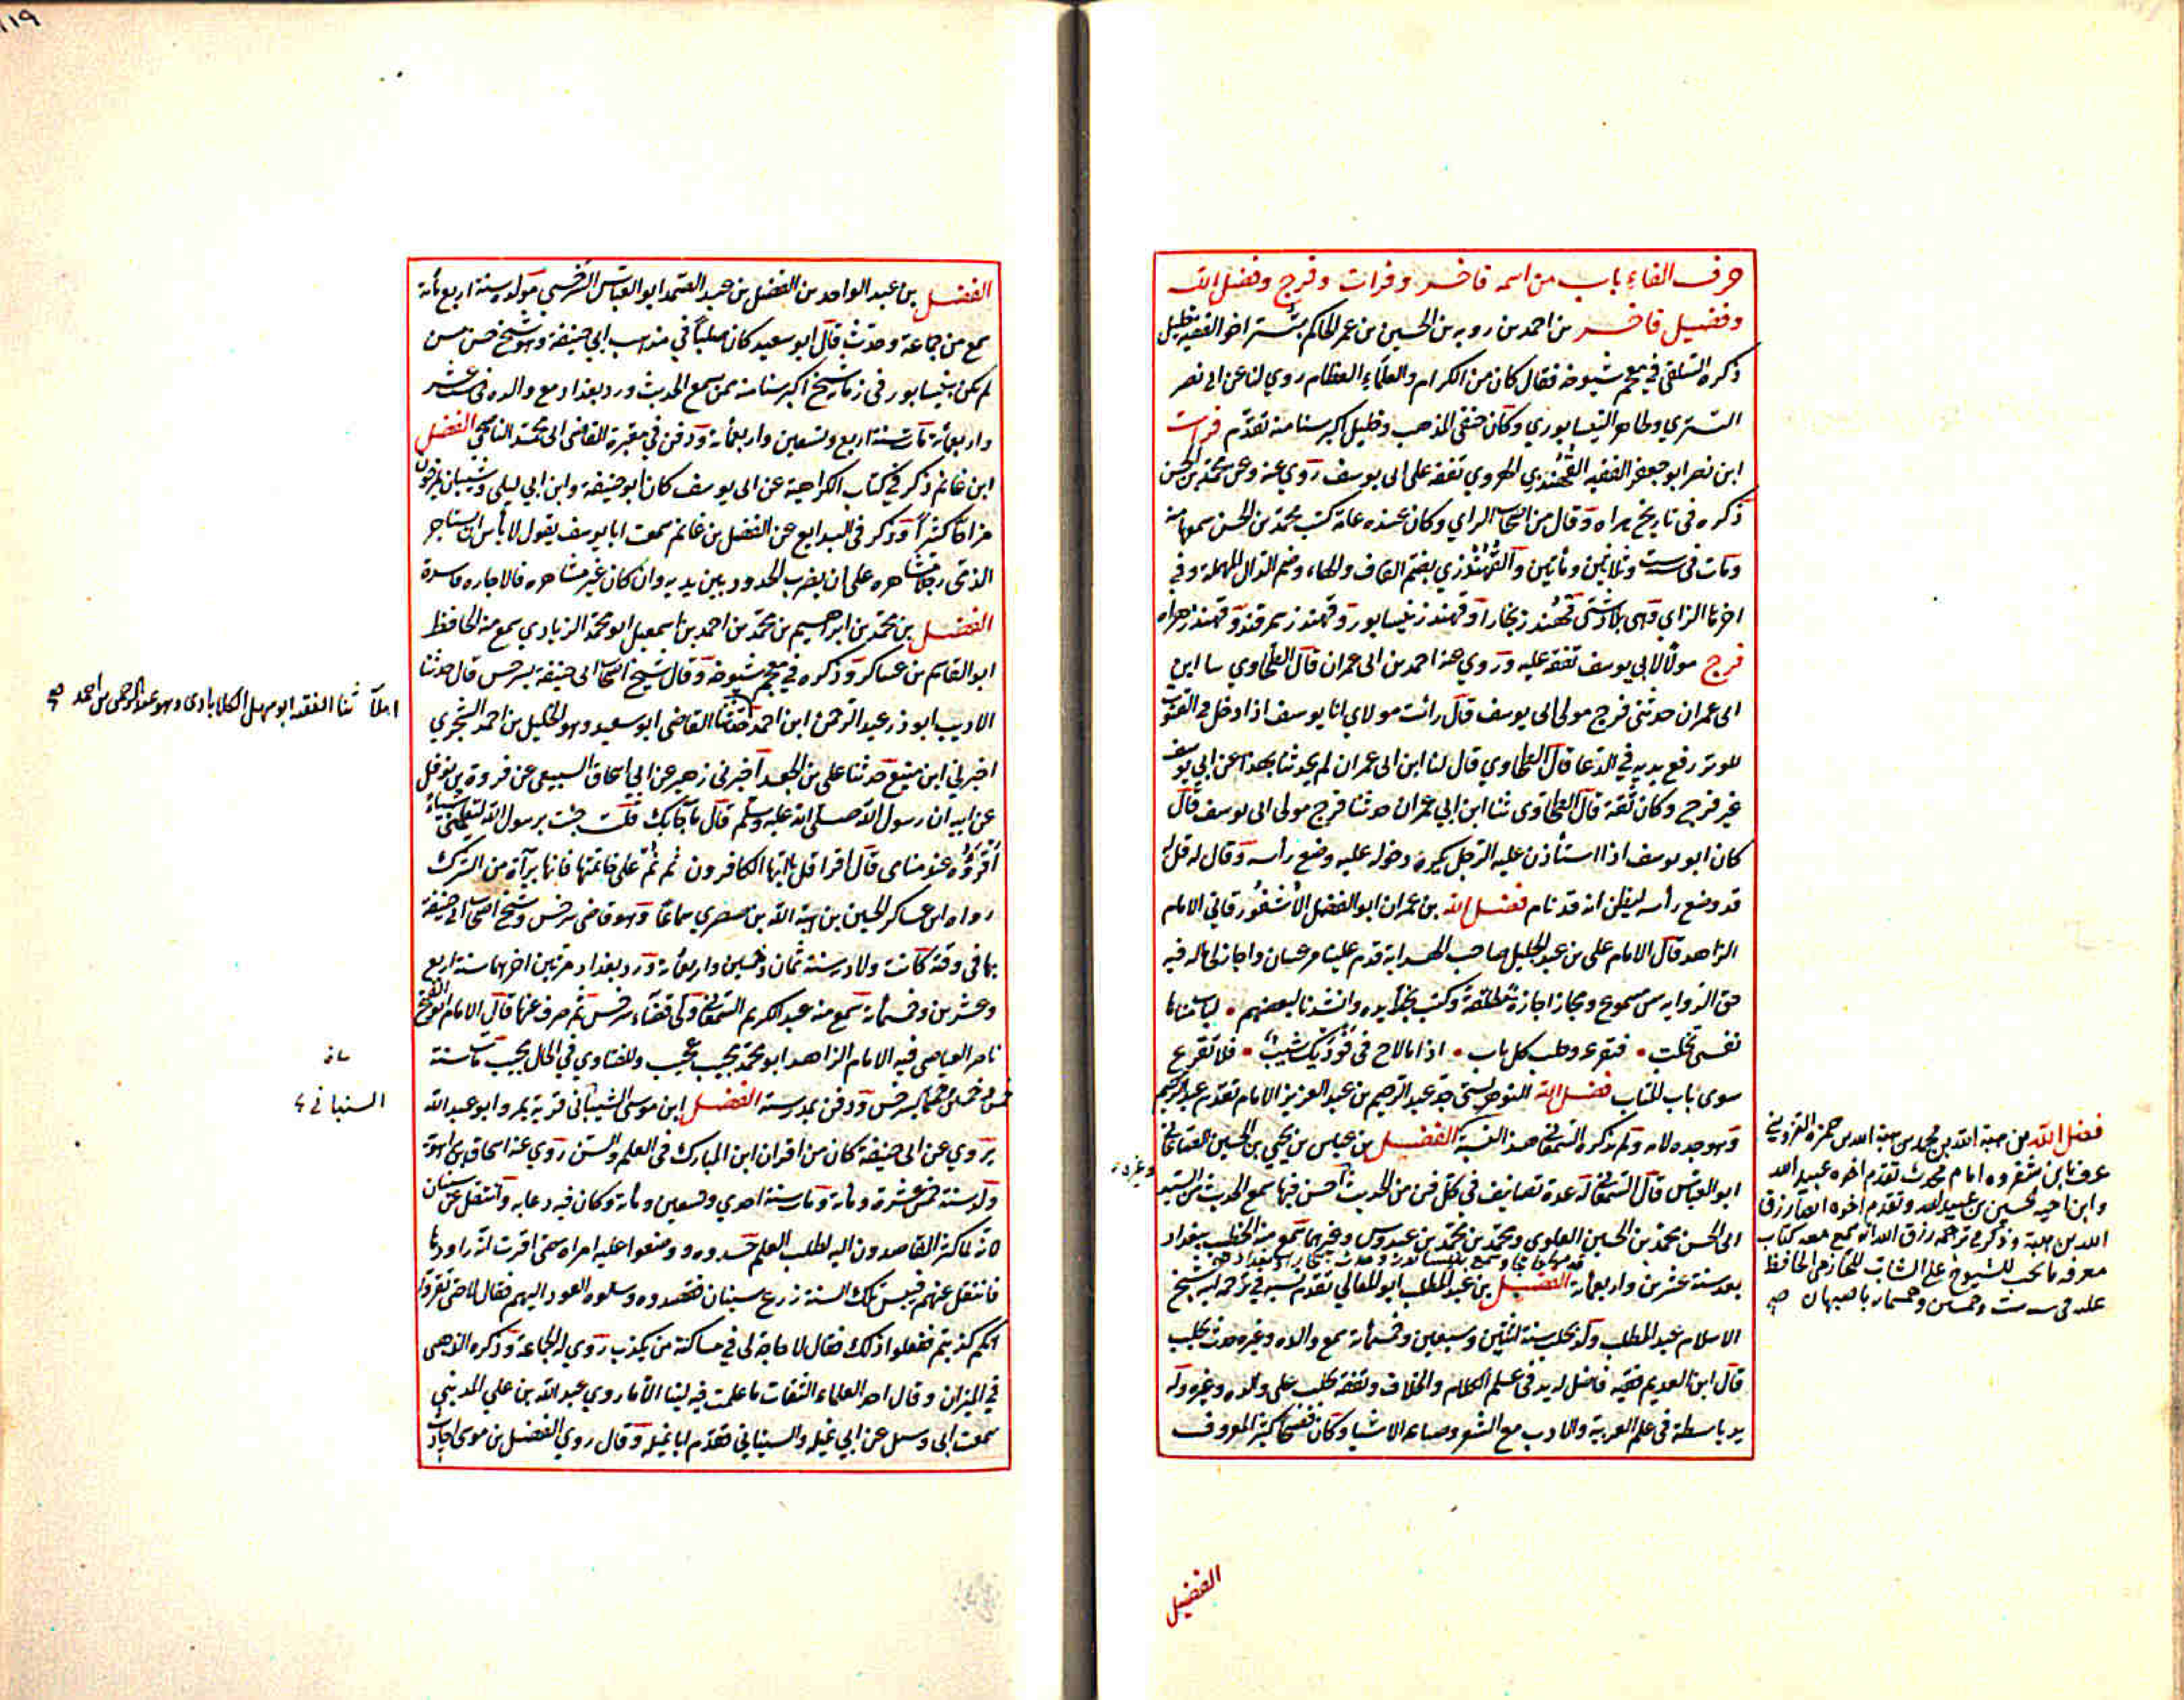 حرف الفاء باب من اسمه فاخر وفرات وفرج وفضل الله
وفضيل فاخر بن احمد بن روبه بن الحسين بن عمر الحاكم بتستر اخو الفقيه خليل
ذكره السلفي في معجم شيوخه فقال كان من الكرام والعلماء العظام روي لنا عن ابى نصر
التستري وطاهر النيسابوري وكان حنفى المذهب وخليل اكبر سنا منه تقدم فرات
ابن نصر ابو جعفر الفقيه القهندزي الهروي تفقه على ابى يوسف روي عنه وعن محمد بن الحسن
ذكره فى تاريخ هراه وقال من اصحاب الراي وكان عنده عامة كتب محمد بن الحسن سمعها منه
ومات فى سنة ست وثلاثين ومأتين والقهندزي بضم القاف والهاء وضم الدال المهملة وفي
اخرها الزاي وهى بلاد شتى قهندز بخارا وقهندز نيسابور وقهندز سمرقند وقهندز هراه
فرج مولا لابي يوسف تفقه عليه وروي عنه احمد بن ابى عمران قال الطحاوي سا ابن
ابى عمران حدثنى فرج مولى ابى يوسف قال رائت مولاي ابا يوسف اذا دخل فى القنوت
للوتر رفع يديه في الدعا قال الطحاوي قال لنا ابن ابى عمران لم يحدثنا بهذا عن ابي يوسف
غير فرج وكان ثقة قال الطحاوى ثنا ابن ابي عمران حدثنا فرج مولى ابى يوسف قال
كان ابو يوسف اذا استأذن عليه الرجل يكره دخوله عليه وضع رأسه وقال له قل له
قد وضع رأسه ليظن انه قد نام فضل الله بن عمران ابو الفضل الاشفورقاني الامام
الزاهد قال الامام على بن عبد الجليل صاحب الهداية قدم علينا مرغينان واجاز لى ماله فيه
حق الرواية من مسموع ومجاز اجازة مطلقة وكتب بخط يده وانشدنا لبعضهم • لباب منايا
نفسى تخلت • فتقرع وطلب كل باب • اذا ما لاح فى فوديك شيب • فلا تقرع
سوى باب المتاب فضل الله النوحى جد عبد الرحيم بن عبد العزيز الامام تقدم عبد الرحيم
وهو جده لامه ولم يذكر السمعانى هذه النسبة الفضل بن عباس بن يحيي بن الحسين الصاغاني
ابو العباس قال السمعانى له عدة تصانيف في كل فن من الحديث احسن فيها سمع الحديث من السيد
ابى الحسن محمد بن الحسين العلوى ومحمد بن محمد بن عبدوس وغيرهما سمع منه الخطيب ببغداد
بعد سنة عشرين واربعمأة الفضل بن عبد المطلب ابو المعالي تقدم نسبه في ترجمة ابيه شيخ
الاسلام عبد المطلب ولد بحلب سنة اثنتين وسبعين وخمسمأة سمع والده وغيره حدث بحلب
قال ابن العديم فقيه فاضل له يد فى علم الكلام والخلاف وتفقه بحلب على والده وغيره وله
يد باسطة فى علم العربية والادب مع الشعر وصناعة الانشا وكان فصيحا كثير المعروف
فضل الله بن هبة الله بن محمد بن هبة الله بن حمزة القزوينى
عرف بابن شفروه امام محدث تقدم اخوه عبيد الله
وابن اخيه الحسين بن عبيد الله وتقدم اخوه ايضا رزق
الله بن هبة وذكر فى ترجمة رزق الله انه سمع معه كتاب
معرفة ما يجب للشيوخ على الشاب للخازمى الحافظ
عليه فى سنة ست وخمسين وخمسمأة باصبهان صح
وغيره
الفضيل
١١٩
الفضل بن عبد الواحد بن الفضل بن عبد الصمد ابو العباس السرخسي مولده سنة اربع مأة
سمع من جماعة وحدث قال ابو سعيد كان صلبا في مذهب ابي حنيفة وهو شيخ حسن مسن
لم يكن بنيسابور فى زمانه شيخ اكبر سنا منه ممن يسمع الحديث ورد بغداد مع والده فى ست عشر
واربعمأة مات سنة اربع وتسعين واربعمأة ودفن في مقبرة القاضى ابى محمد الناصحي الفضل
ابن غانم ذكر في كتاب الكراهية عن ابى يوسف كان ابو حنيفة وابن ابي ليلى وشيبان يمزحون
مزاحا كثيرا وذكر فى البدايع عن الفضل بن غانم سمعت ابا يوسف يقول لا بأس ان يستاجر
الذمى رجلا مشاهره على ان يضرب الحدود بين يديه وان كان غير مشاهره فالاجاره فاسدة
الفضل بن محمد بن ابراهيم بن محمد بن احمد بن اسمعيل ابو محمد الزيادي سمع منه الحافظ
ابو القاسم بن عساكر وذكره في معجم شيوخه وقال شيخ اصحاب ابى حنيفة بسرخس قال حدثنا
الاديب ابو ذر عبد الرحمن ابن احمد حدثنا القاضى ابو سعيد وهو الخليل بن احمد السجزي
اخبرني ابن منيع حدثنا على بن الجعد اخبرنى زهير عن ابي اسحاق السبيعى عن فروة بن نوفل
عن ابيه ان رسول الله صلى الله عليه وسلم قال ما جابك قلت جئت يرسول الله لتعلمنى شياء
اقرؤه عند منامى قال اقرا قل يا ايها الكافرون ثم نم على خاتمتها فانها برآة من الشرك
رواه ابن عساكر الحسين بن هبة الله بن صصري سماعا وهو قاضى سرخس وشيخ اصحاب ابى حنيفة
بها فى وقته كانت ولادته سنة ثمان وخمسين واربعمأة ورد بغداد مرتين اخرهما سنة اربع
وعشرين وخمسمأة سمع منه عبد الكريم السمعانى ولى قضاء سرخس ثم صرف عنها قال الامام ابو الفتح
ناصر العياضى فيه الامام الزاهد ابو محمد نجيب عجيب وللفتاوي في الحال يجيب مات سنة
خمس وخمسمأة بسرخس ودفن بمدرسته الفضل ابن موسى الشيبانى قرية بمرو ابو عبد الله
يروي عن ابى حنيفة كان من اقران ابن المبارك فى العلم والسن روي عنه اسحاق بن راهويه
ولد سنة خمس عشرة ومأة ومات سنة احدي وتسعين ومأة وكان فيه دعابه وانتقل عن سينان
لانه لما كثر القاصدون اليه لطلب العلم حسدوه ووضعوا عليه امراه حتى اقرت انه راودها
فانتقل عنهم فيبس تلك السنة زرع سينان فقصدوه وسلوه العود اليهم فقال لا حتى تقروا
انكم كذبتم ففعلوا ذلك فقال لا حاجة لى في مساكنة من يكذب روي له الجماعة وذكره الذهبى
في الميزان وقال احد العلماء الثقات ما علمت فيه لينا الا ما روي عبد الله بن علي المدينى
سمعت ابى وسئل عن ابي تميله والسينانى فقدم ابا تميله وقال روي الفضل بن موسى احاديث
املآ ثنا الفقيه ابو سهل الكلاباذى وهو عبد الرحمن بن احمد صح
السينانى